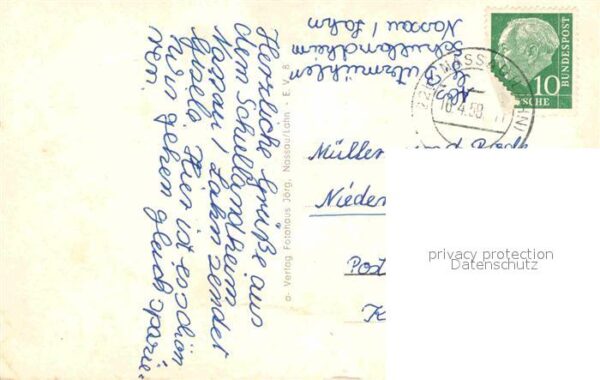 Herzliche Grüße aus
dem Schullandheim
Nassau / Lahn sendet
Gisela Hier ist es schön
wir gehen gleich spazie-
ren.
a- Verlag Fotohaus Jörg, Nassau/Lahn - E. V. B
Abs.
Schullandheim
Nassau / Lahn
10
DEUTSCHE BUNDESPOST
NASSAU (LAHN)
10.4.58
Müller
Nieder
Post
K
privacy protection
Datenschutz